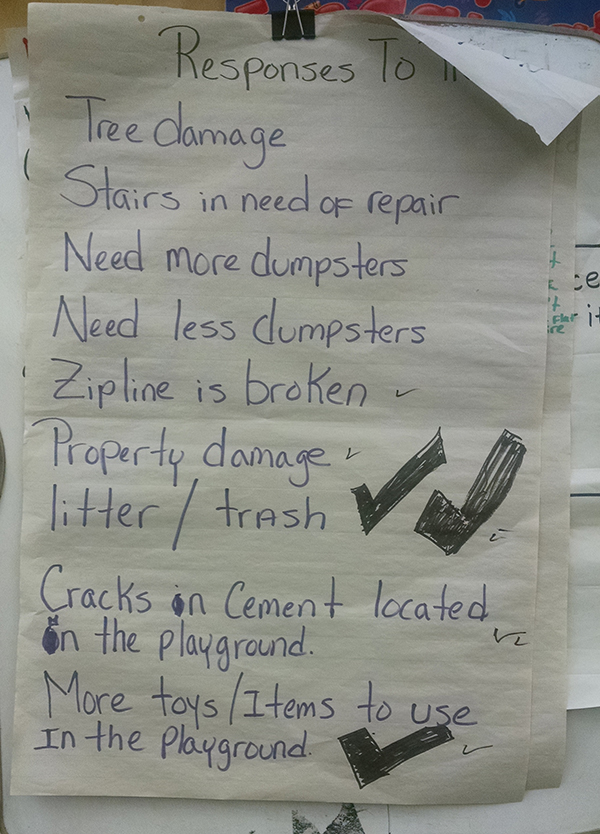 Responses To
Tree damage
Stairs in need of repair
Need more dumpsters
Need less dumpsters
Zipline is broken ✓
Property damage ✓
litter / trash ✓ ✓
Cracks in Cement located
on the playground.
More toys/Items to use
In the Playground. ✓